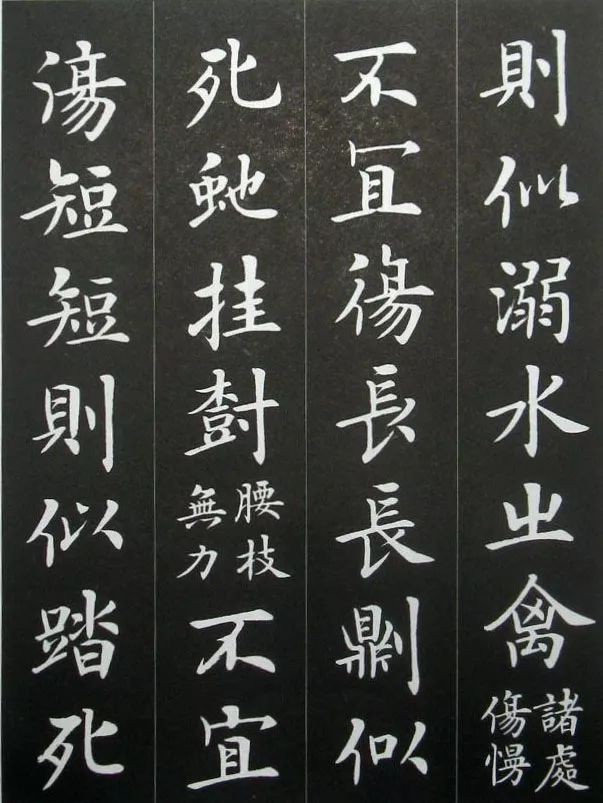 則似溺水之禽諸處傷慢
不宜傷長長則似
死虵挂樹腰枝無力不宜
傷短短則似踏死